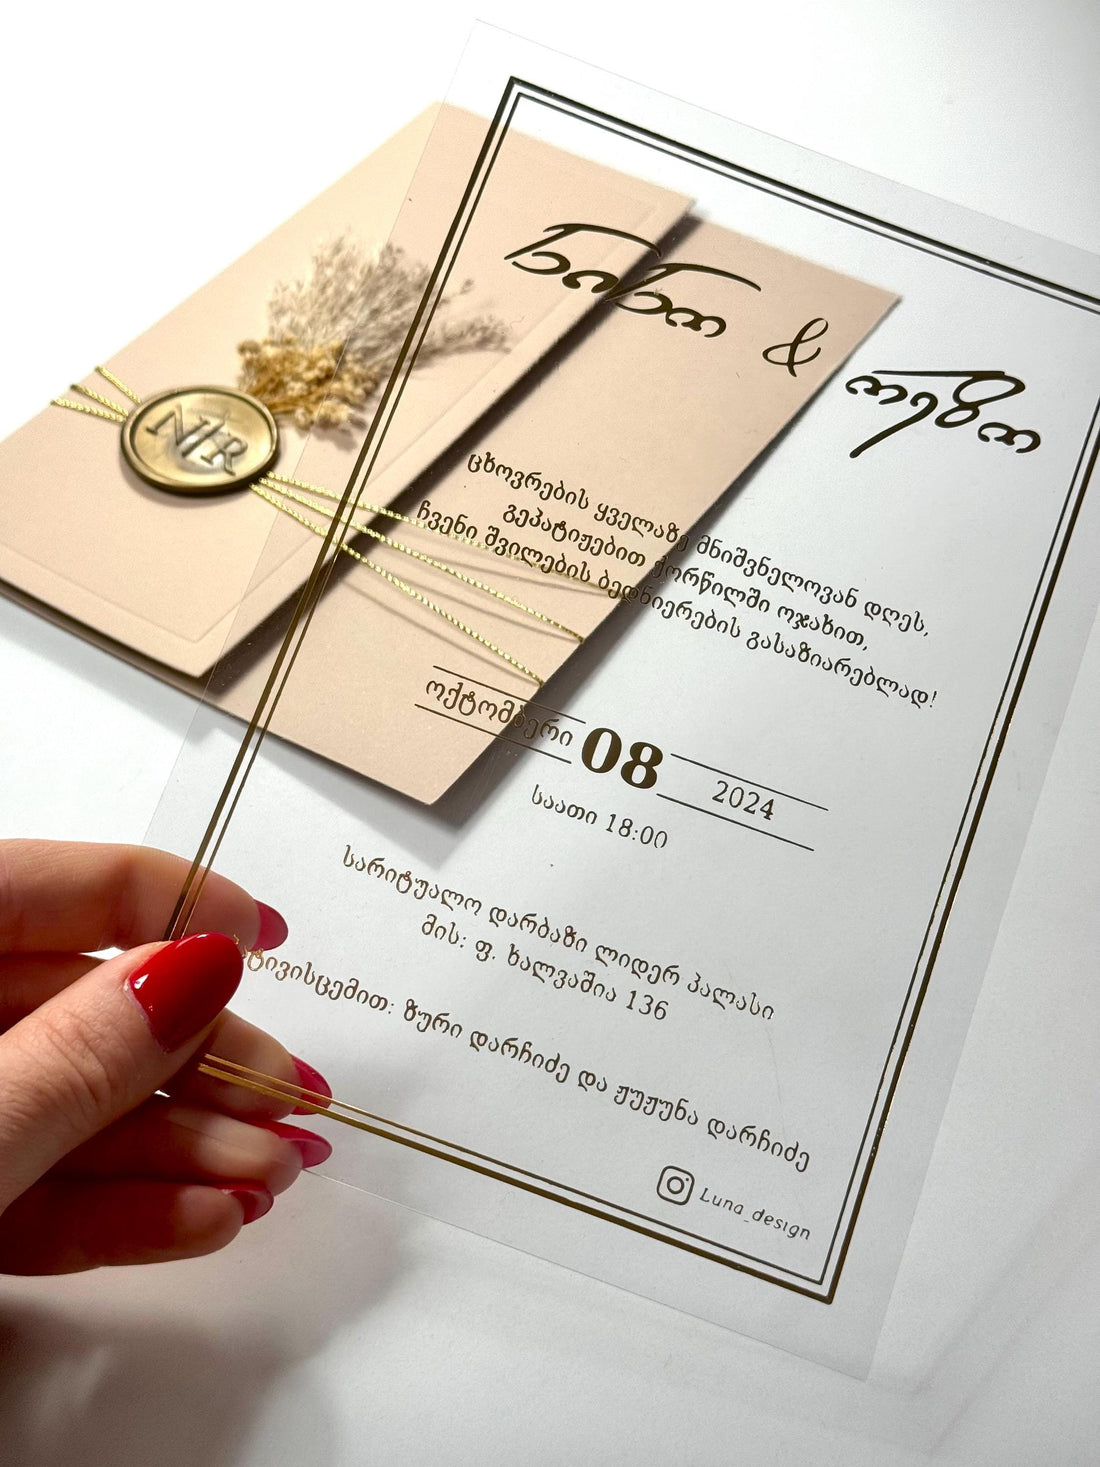 N R
&
ცხოვრების ყველაზე მნიშვნელოვან დღეს,
გეპატიჟებით ქორწილში ოჯახით,
ჩვენი შვილების ბედნიერების გასაზიარებლად!
ოქტომბერი 08 2024
საათი 18:00
სარიტუალო დარბაზი ლიდერ პალასი
მის: ფ. ხალვაშია 136
პატივისცემით: ზური დარჩიძე და ჟუჟუნა დარჩიძე
Luna_design